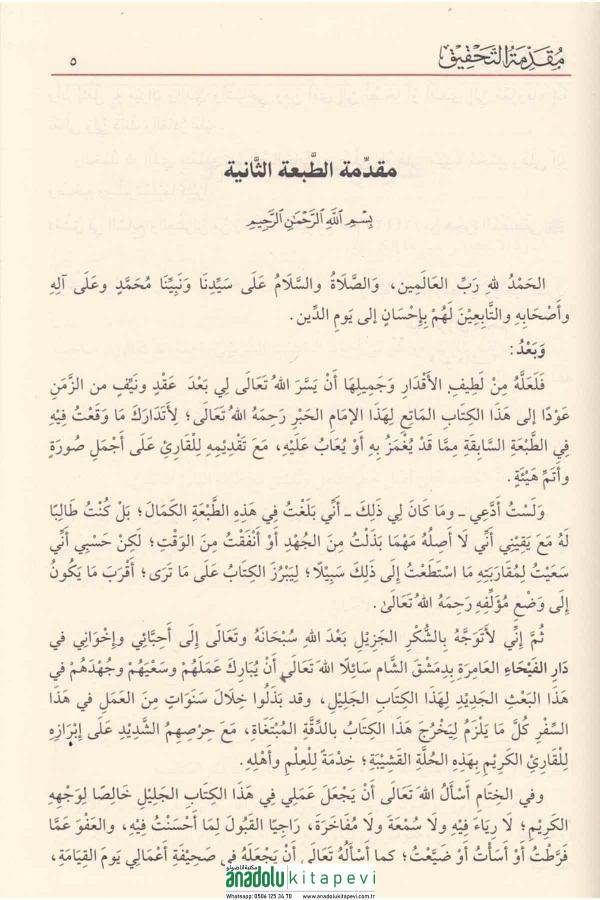 مُقَدِّمَةُ التَّحْقِيق
٥
مقدِّمة الطَّبعة الثَّانية
بِسْمِ اللَّهِ الرَّحْمَٰنِ الرَّحِيمِ
الحَمْدُ للهِ رَبِّ العَالَمِين، وَالصَّلَاةُ والسَّلَامُ عَلَى سَيِّدِنَا وَنَبِيِّنَا مُحَمَّدٍ وعَلَى آلِهِ
وأَصْحَابِهِ والتَّابِعِيْنَ لَهُمْ بِإِحْسَانٍ إلى يَومِ الدِّين.
وَبَعْدُ:
فَلَعَلَّهُ مِنْ لَطِيفِ الأَقْدَارِ وَجَمِيلِهَا أَنْ يَسَّرَ اللهُ تَعَالَى لِي بَعْدَ عَقْدٍ ونَيِّفٍ من الزَّمَنِ
عَوْدًا إلى هَذَا الكِتَابِ المَاتِعِ لِهَذَا الإمَامِ الحَبْرِ رَحِمَهُ اللهُ تَعَالَى؛ لِأَتَدَارَكَ مَا وَقَعْتُ فِيْهِ
فِي الطَّبْعَةِ السَّابِقَةِ مِمَّا قَدْ يُغْمَزُ بِهِ أَوْ يُعَابُ عَلَيْهِ، مَعَ تَقْدِيْمِهِ لِلْقَارِئِ عَلَى أَجْمَلِ صُورَةٍ
وأَتَمِّ هَيْئَةٍ.
وَلَسْتُ أَدَّعِي ـ ومَا كَانَ لِي ذَلِكَ ـ أَنِّي بَلَغْتُ فِي هَذِهِ الطَّبْعَةِ الكَمَالَ؛ بَلْ كُنْتُ طَالِبًا
لَهُ مَعَ يَقِيْنِي أَنِّي لَا أَصِلُهُ مَهْمَا بَذَلْتُ مِنَ الجُهْدِ أَوْ أَنْفَقْتُ مِنَ الوَقْتِ؛ لَكِنْ حَسْبِي أَنِّي
سَعَيْتُ لِمُقَارَبَتِهِ مَا اسْتَطَعْتُ إِلَى ذَلِكَ سَبِيْلًا؛ لِيَبْرُزَ الكِتَابُ عَلَى مَا تَرَى؛ أَقْرَبَ مَا يَكُونُ
إِلَى وَضْعِ مُؤَلِّفِهِ رَحِمَهُ اللهُ تَعَالَىٰ.
ثُمَّ إِنِّي لأَتَوَجَّهُ بِالشُّكْرِ الجَزِيْلِ بَعْدَ اللهِ سُبْحَانَهُ وتَعَالَى إِلَى أَحِبَّائِي وإِخْوَانِي في
دَارِ الفَيْحَاءِ العَامِرَةِ بِدِمَشْقِ الشَّام سَائِلًا اللهَ تَعَالَى أَنْ يُبَارِكَ عَمَلَهُمْ وسَعْيَهُمْ وجُهْدَهُمْ في
هَذَا البَعْثِ الجَدِيْدِ لِهَذَا الكِتَابِ الجَلِيْلِ، وقد بَذَلُوا خِلَالَ سَنَوَاتٍ مِنَ العَمَلِ في هَذَا
السِّفْرِ كُلَّ مَا يَلْزَمُ لِيَخْرُجَ هَذَا الكِتَابُ بالدِّقَّةِ المُبْتَغَاةِ، مَعَ حِرْصِهِمُ الشَّدِيْدِ عَلَى إِبْرَازِهِ
لِلْقَارِئِ الكَرِيْمِ بِهَذِهِ الحُلَّةِ القَشِيْبَةِ؛ خِدْمَةً لِلْعِلْمِ وأَهْلِهِ.
وفي الخِتَامِ أَسْأَلُ اللهَ تَعَالَى أَنْ يَجْعَلَ عَمَلِي فِي هَذَا الكِتَابِ الجَلِيْلِ خَالِصًا لِوَجْهِهِ
الكَرِيْمِ؛ لَا رِيَاءَ فِيْهِ ولَا سُمْعَةَ ولَا مُفَاخَرَةَ، رَاجِيًا القَبُولَ لِمَا أَحْسَنْتُ فِيْهِ، والعَفْوَ عَمَّا
فَرَّطْتُ أَوْ أَسَأْتُ أَوْ ضَيَّعْتُ؛ كما أَسْأَلُهُ تَعَالَى أَنْ يَجْعَلَهُ في صَحِيْفَةِ أَعْمَالِي يَومَ القِيَامَةِ،
anadolu kitapevi
Whatsapp: 0506 125 34 70 www.anadolukitapevi.com